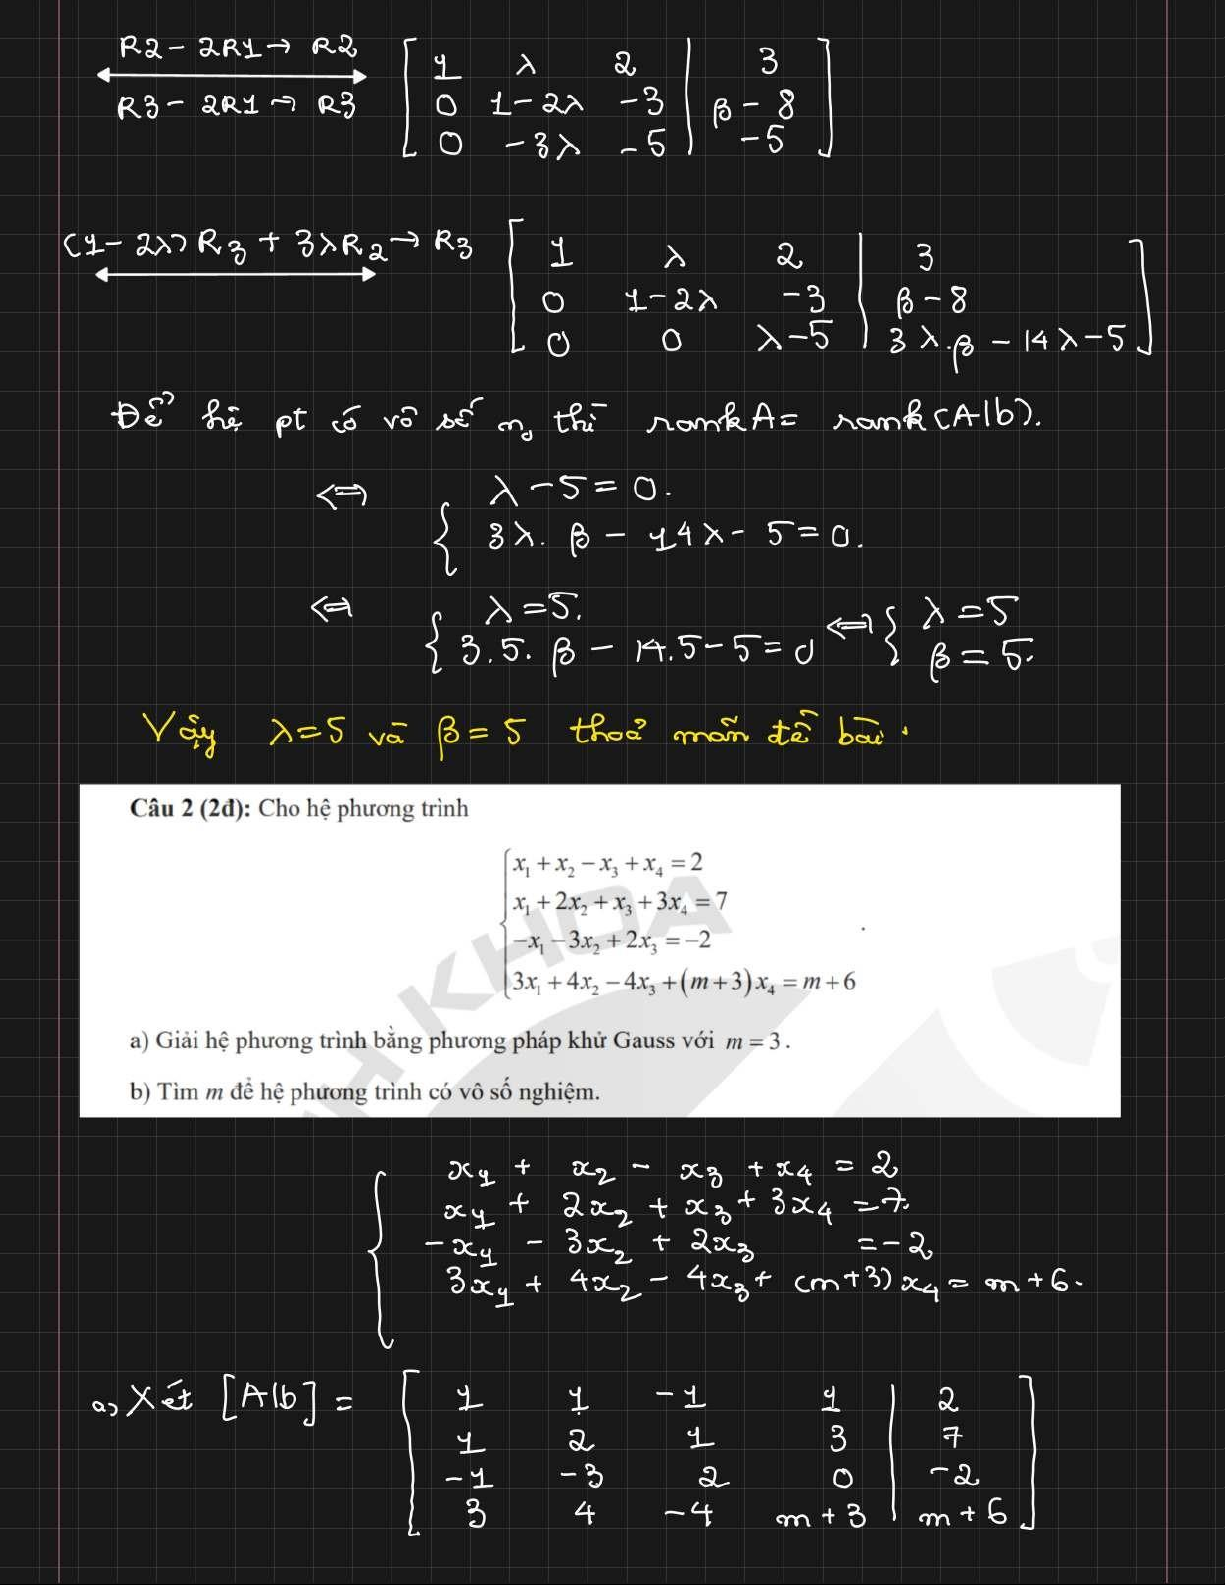 R2 - 2R1 → R2
R3 - 2R1 → R3
[ 1 λ 2 | 3 ]
[ 0 1-2λ -3 | β - 8 ]
[ 0 -3λ -5 | -5 ]
(1-2λ)R3 + 3λR2 → R3
[ 1 λ 2 | 3 ]
[ 0 1-2λ -3 | β-8 ]
[ 0 0 λ-5 | 3λ.β - 14λ-5 ]
Để hệ pt có vô số n₀ thì rankA= rank(A|b).
⇔ { λ-5=0.
3λ. β - 14λ- 5=0.
⇔ { λ=5. ⇔ { λ=5
3.5. β - 14.5-5=0 β=5.
Vậy λ=5 và β=5 thoả mãn đề bài.
Câu 2 (2đ): Cho hệ phương trình
x₁ + x₂ − x₃ + x₄ = 2
x₁ + 2x₂ + x₃ + 3x₄ = 7
−x₁ − 3x₂ + 2x₃ = −2
3x₁ + 4x₂ − 4x₃ + (m+3)x₄ = m+6
KHOA
a) Giải hệ phương trình bằng phương pháp khử Gauss với m = 3.
b) Tìm m để hệ phương trình có vô số nghiệm.
x₁ + x₂ - x₃ + x₄ = 2
x₁ + 2x₂ + x₃ + 3x₄ =7.
-x₁ - 3x₂ + 2x₃ =-2
3x₁ + 4x₂ - 4x₃ + (m+3)x₄ = m+6.
a, Xét [A|b] =
[ 1 1 -1 1 | 2 ]
[ 1 2 1 3 | 7 ]
[ -1 -3 2 0 | -2 ]
[ 3 4 -4 m+3 | m+6 ]